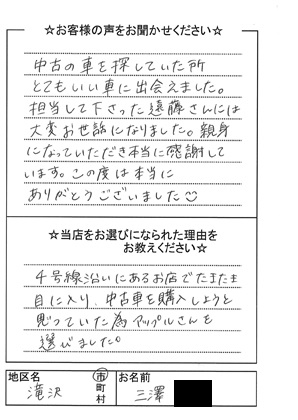 ☆お客様の声をお聞かせください☆
中古の車を探していた所
とてもいい車に出会えました。
担当して下さった遠藤さんには
大変お世話になりました。親身
になっていただき本当に感謝して
います。この度は本当に
ありがとうございました
☆当店をお選びになられた理由を
お教えください☆
4号線沿いにあるお店でたまたま
目に入り、中古車を購入しようと
思っていた為アップルさんを
選びました。
地区名 市町村 お名前
滝沢 三澤